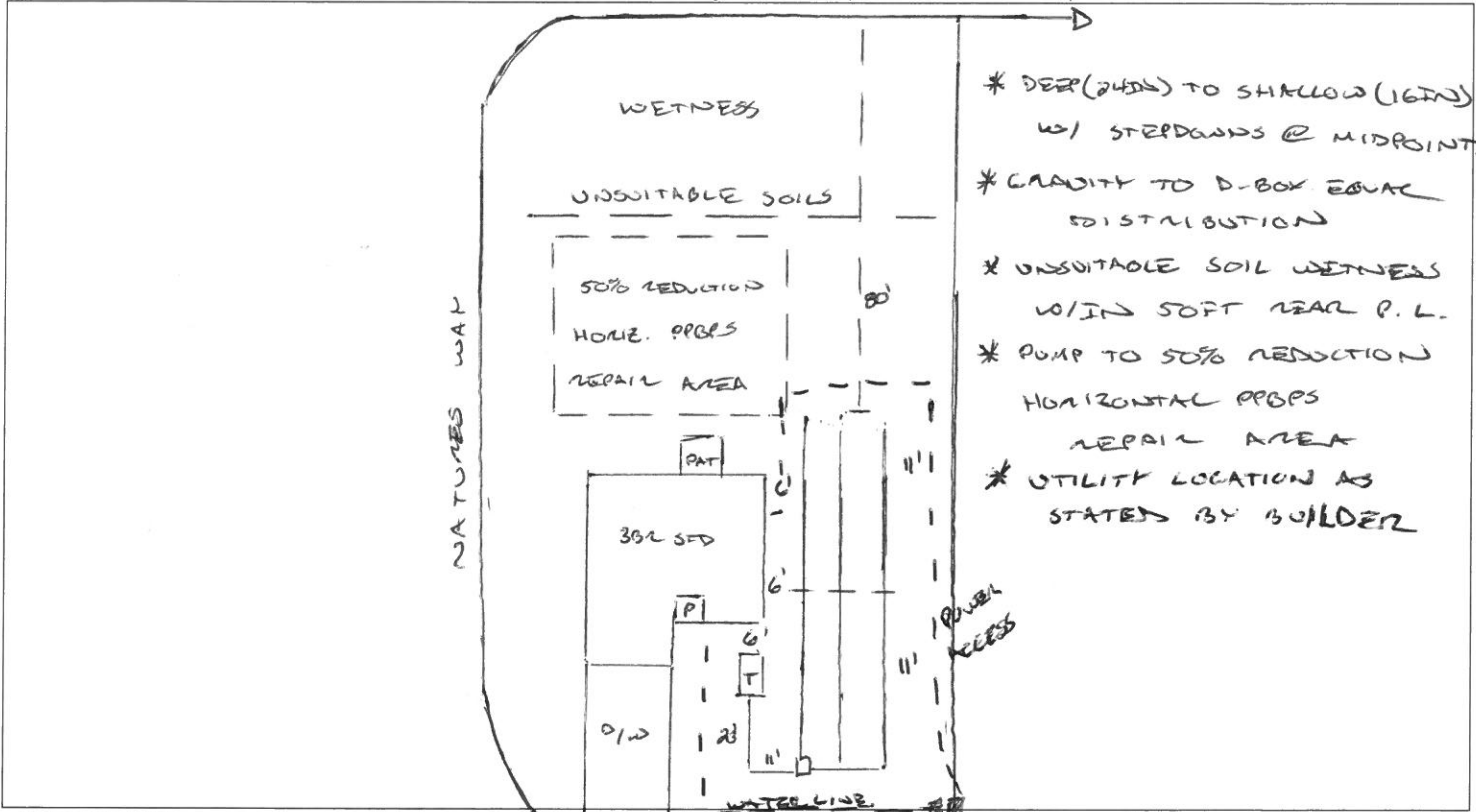 WETNESS
UNSUITABLE SOILS
50% REDUCTION
HORIZ. PPBPS
REPAIR AREA
80'
NATURES WAY
PAT
6'
11'
3BR SFD
6'
P
6'
T
POWER
ACCESS
11'
D/W
23'
11'
WATER LINE
* DEEP(24IN) TO SHALLOW (16IN)
W/ STEPDOWNS @ MIDPOINT
* GRAVITY TO D-BOX EQUAL
DISTRIBUTION
* UNSUITABLE SOIL WETNESS
W/IN 50FT REAR P.L.
* PUMP TO 50% REDUCTION
HORIZONTAL PPBPS
REPAIR AREA
* UTILITY LOCATION AS
STATED BY BUILDER